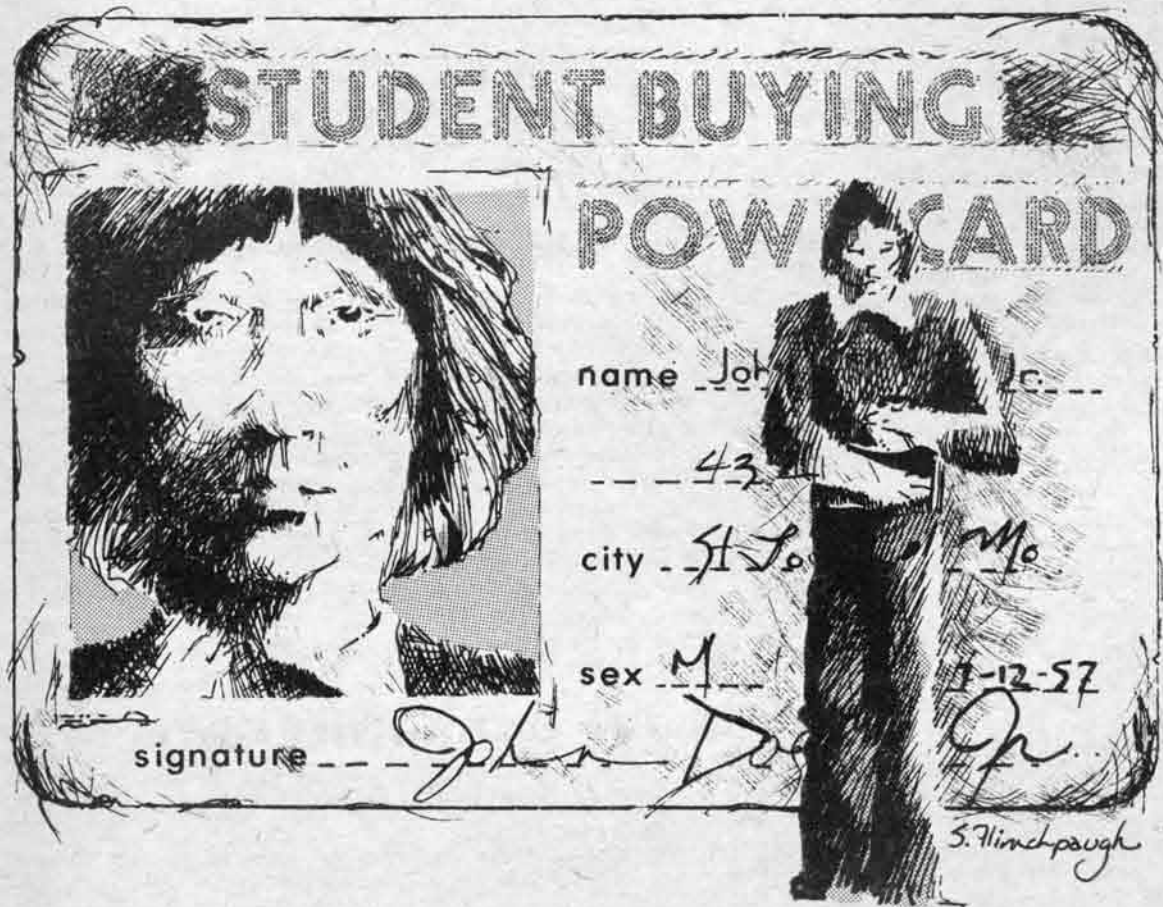 STUDENT BUYING
POW CARD
name Joh Jr.
43
city St Lo Mo
sex M 7-12-57
signature John Doe Jr.
S. Flinchpaugh